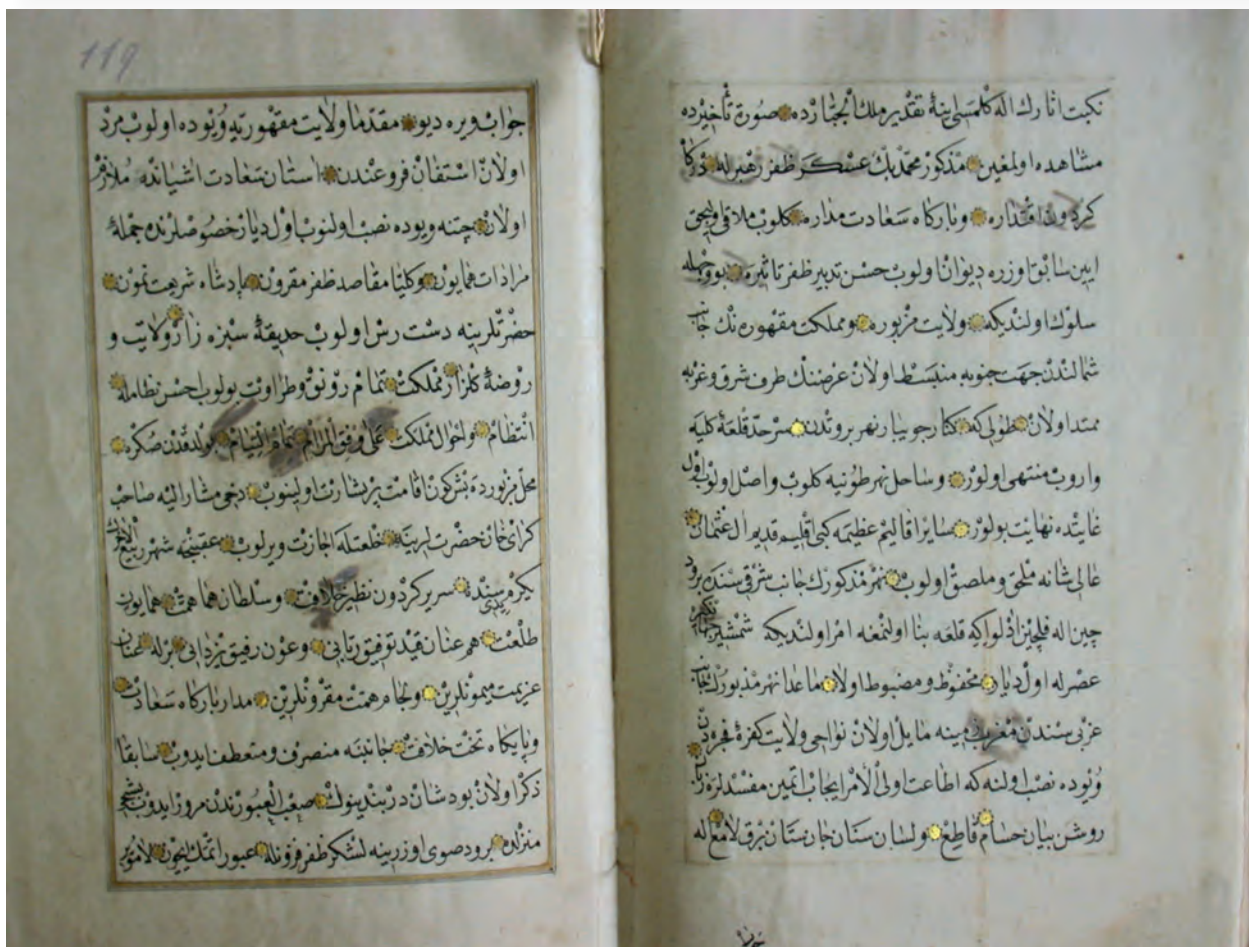 نكبت اثارك اله كلمسى اينۀ تقدير ملك الجبارده صورة تأخيرده
مشاهده اولمغين مذكور محمد بك عسكر ظفر رهبرله
كردون اقتداره وباركاه سعادت مداره كلوب ملاقى
ايين سابق اوزره ديوان اولوب حسن تدبير ظفر تاثيره بو وجهله
سلوك اولنديكه ولايت مزبوره ومملكت مقهوره نك جانب
شمالندن جهت جنوبه منبسط اولان عرضنك طرف شرق وغربه
ممتد اولان طولى كه كنار جويبار نهر بروتدن سرحد قلعۀ كليه
واروب منتهى اولور وساحل نهر طونيه كلوب واصل اولوب اول
غايتده نهايت بولور ساير اقاليم عظيمه كبى اقليم قديم ال عثمان
عالى شانه ملحق وملصق اولوب نهر مذكورك جانب شرقى سنده برود
چين اله قلچين ادلو ايكه قلعه بنا اولنمغه امر اولنديكه شمشير جهانكير
عصرله اول ديار محفوظ ومضبوط اولا ماعدا نهر مذبورك جانب
غربى سندن مغرب زمينه مايل اولان نواحى ولايت كفرۀ فجره دن
ويوده نصب اولنه كه اطاعت اولى الامر ايجاب اتمين مفسدلره زبان
روشن بيان حسام قاطع ولسان سنان جان ستان برق لامع اله
119
جواب ويره ديو مقدما ولايت مقهوريه ويوده اولوب مرد
اولان استفان فروعندن استان سعادت اشيانده ملازم
اولان چتنه ويوده نصب اولنوب اول ديار خصوصلرنده جملۀ
مرادات همايون وكليا مقاصد ظفر مقرون پادشاه شريعت نمون
حضرتلرينه دست رس اولوب حديقۀ سبزه زار ولايت و
روضۀ كلزار مملكت تمام رونق وطراوت بولوب احسن نظامله
انتظام واحوال مملكت على وفق المرام تمام التيام بولدقدن صكره
محل مزبورده بش كون اقامت پر بشارت اولينوب دخى مشار اليه صاحب
كراى خان حضرتلرينه خلعتله اجازت ويرلوب عقبنجه شهر ربيع الاخرك
يكرميسنده سرير كردون نظير خلافت وسلطان هما همت همايون
طلعت هم عنان قيد توفيق ربانى وعون رفيق يزدانى برله عنان
عزيمت ميمونلرين ولجام همت مقرونلرين مدار باركاه سعادت
وپايكاه تخت خلافت جانبنه منصرف ومنعطف ايدوب سابقا
ذكر اولان بودشان دربندينوك صعب العبورندن مرور ايدوب بشنجى
منزلده برود صوى اوزرينه لشكر ظفر فروزله عبور اتمك ايچون